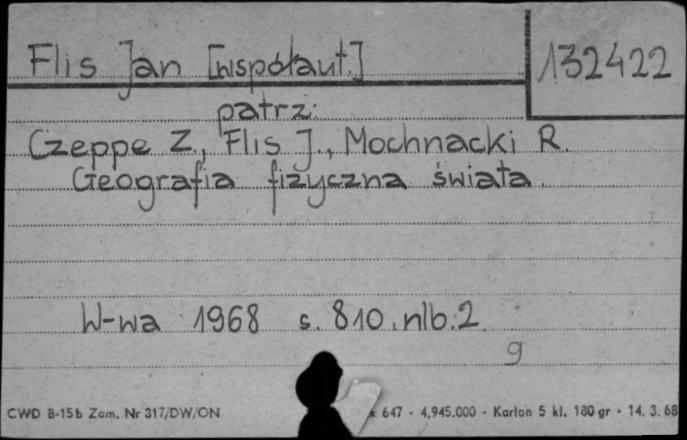 Flis Jan [współaut.]
132422
patrz:
Czeppe Z., Flis J., Mochnacki R.
Geografia fizyczna świata.
W-wa 1968 s. 810. nlb. 2
g
CWD B-15b Zam. Nr 317/DW/ON
647 - 4,945.000 - Karton 5 kl. 180 gr - 14. 3. 68